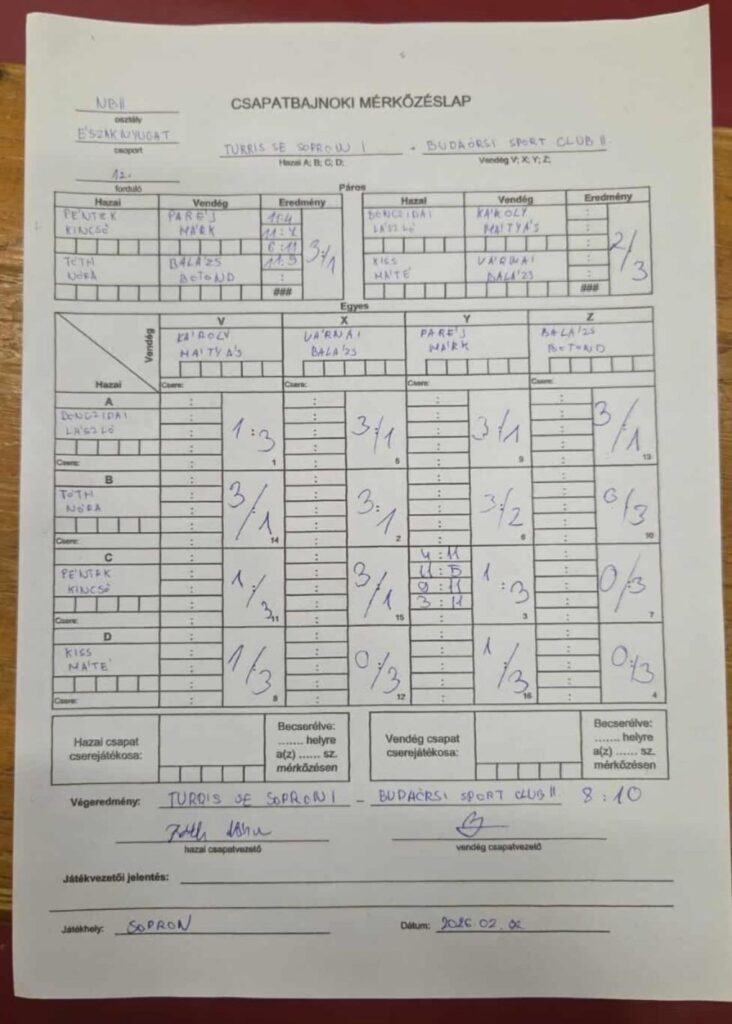 NBII
osztály
CSAPATBAJNOKI MÉRKŐZÉSLAP
ÉSZAKNYUGAT
csoport
TURRIS SE SOPRON I - BUDAÖRSI SPORT CLUB II.
Hazai A; B; C; D; Vendég V; X; Y; Z;
12.
forduló
Páros
Hazai Vendég Eredmény Hazai Vendég Eredmény
PÉNTEK PARÉJ 11:4 BENCZIDAI KÁROLY :
KINCSŐ MÁRK 11:7 LÁSZLÓ MÁTYÁS :
6:11 3/1 : 2/3
TÓTH BALÁZS 11:9 KISS VÁRNAI :
NÓRA BOTOND : MÁTÉ BALÁZS :
### ###
Egyes
Vendég V X Y Z
KÁROLY VÁRNAI PARÉJ BALÁZS
MÁTYÁS BALÁZS MÁRK BOTOND
Hazai Csere: Csere: Csere: Csere:
A
BENCZIDAI
LÁSZLÓ 1:3 3/1 3/1 3/1
Csere: 1 5 9 13
B
TÓTH
NÓRA 3/1 3:1 3/2 0/3
Csere: 14 2 6 10
C 4:11
PÉNTEK 11:5
KINCSŐ 1/3 3/1 9:11 1:3 0/3
3:11
Csere: 11 15 3 7
D
KISS
MÁTÉ 1/3 0/3 1/3 0/3
Csere: 8 12 16 4
Hazai csapat cserejátékosa: Becserélve: ....... helyre a(z) ...... sz. mérkőzésen
Vendég csapat cserejátékosa: Becserélve: ....... helyre a(z) ...... sz. mérkőzésen
Végeredmény: TURRIS SE SOPRON I - BUDAÖRSI SPORT CLUB II. 8:10
hazai csapatvezető vendég csapatvezető
Játékvezetői jelentés:
Játékhely: SOPRON Dátum: 2026.02.